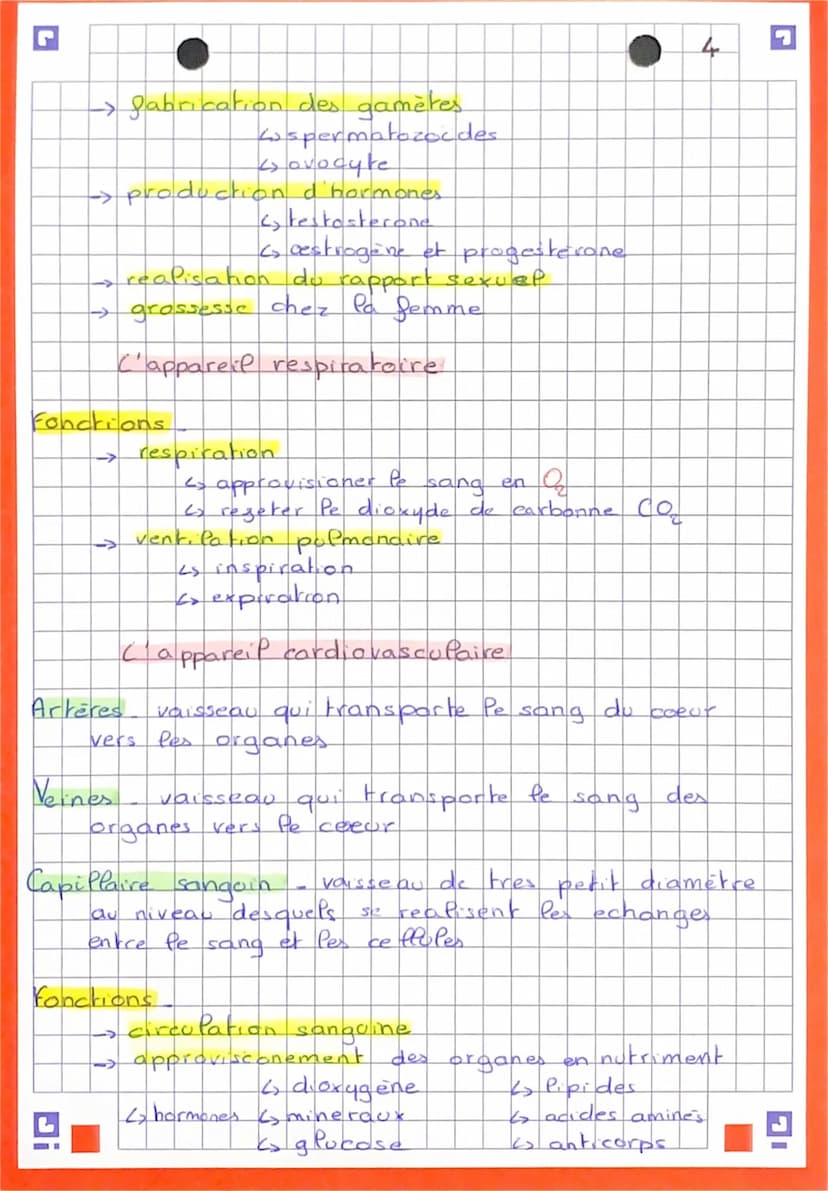 4
→ fabrication des gamètes
↳ spermatozoïdes
↳ ovocyte
→ production d'hormones
↳ testosterone
↳ œstrogène et progestérone
→ realisation du rapport sexuel
→ grossesse chez la femme
L'appareil respiratoire
Fonctions -
→ respiration
↳ approvisioner le sang en O₂
↳ regeter le dioxyde de carbonne CO₂
→ ventilation pulmonaire
↳ inspiration
↳ expiration
L'appareil cardiovasculaire
Artères - vaisseau qui transporte le sang du coeur
vers les organes
Veines - vaisseau qui transporte le sang des
organes vers le coeur
Capillaire sanguin - vaisseau de tres petit diamètre
au niveau desquels se realisent les echanges
entre le sang et les cellules
Fonctions -
→ circulation sanguine
→ approvisionement des organes en nutriment
↳ dioxygène ↳ lipides
↳ hormones ↳ mineraux ↳ acides aminés
↳ glucose ↳ anticorps